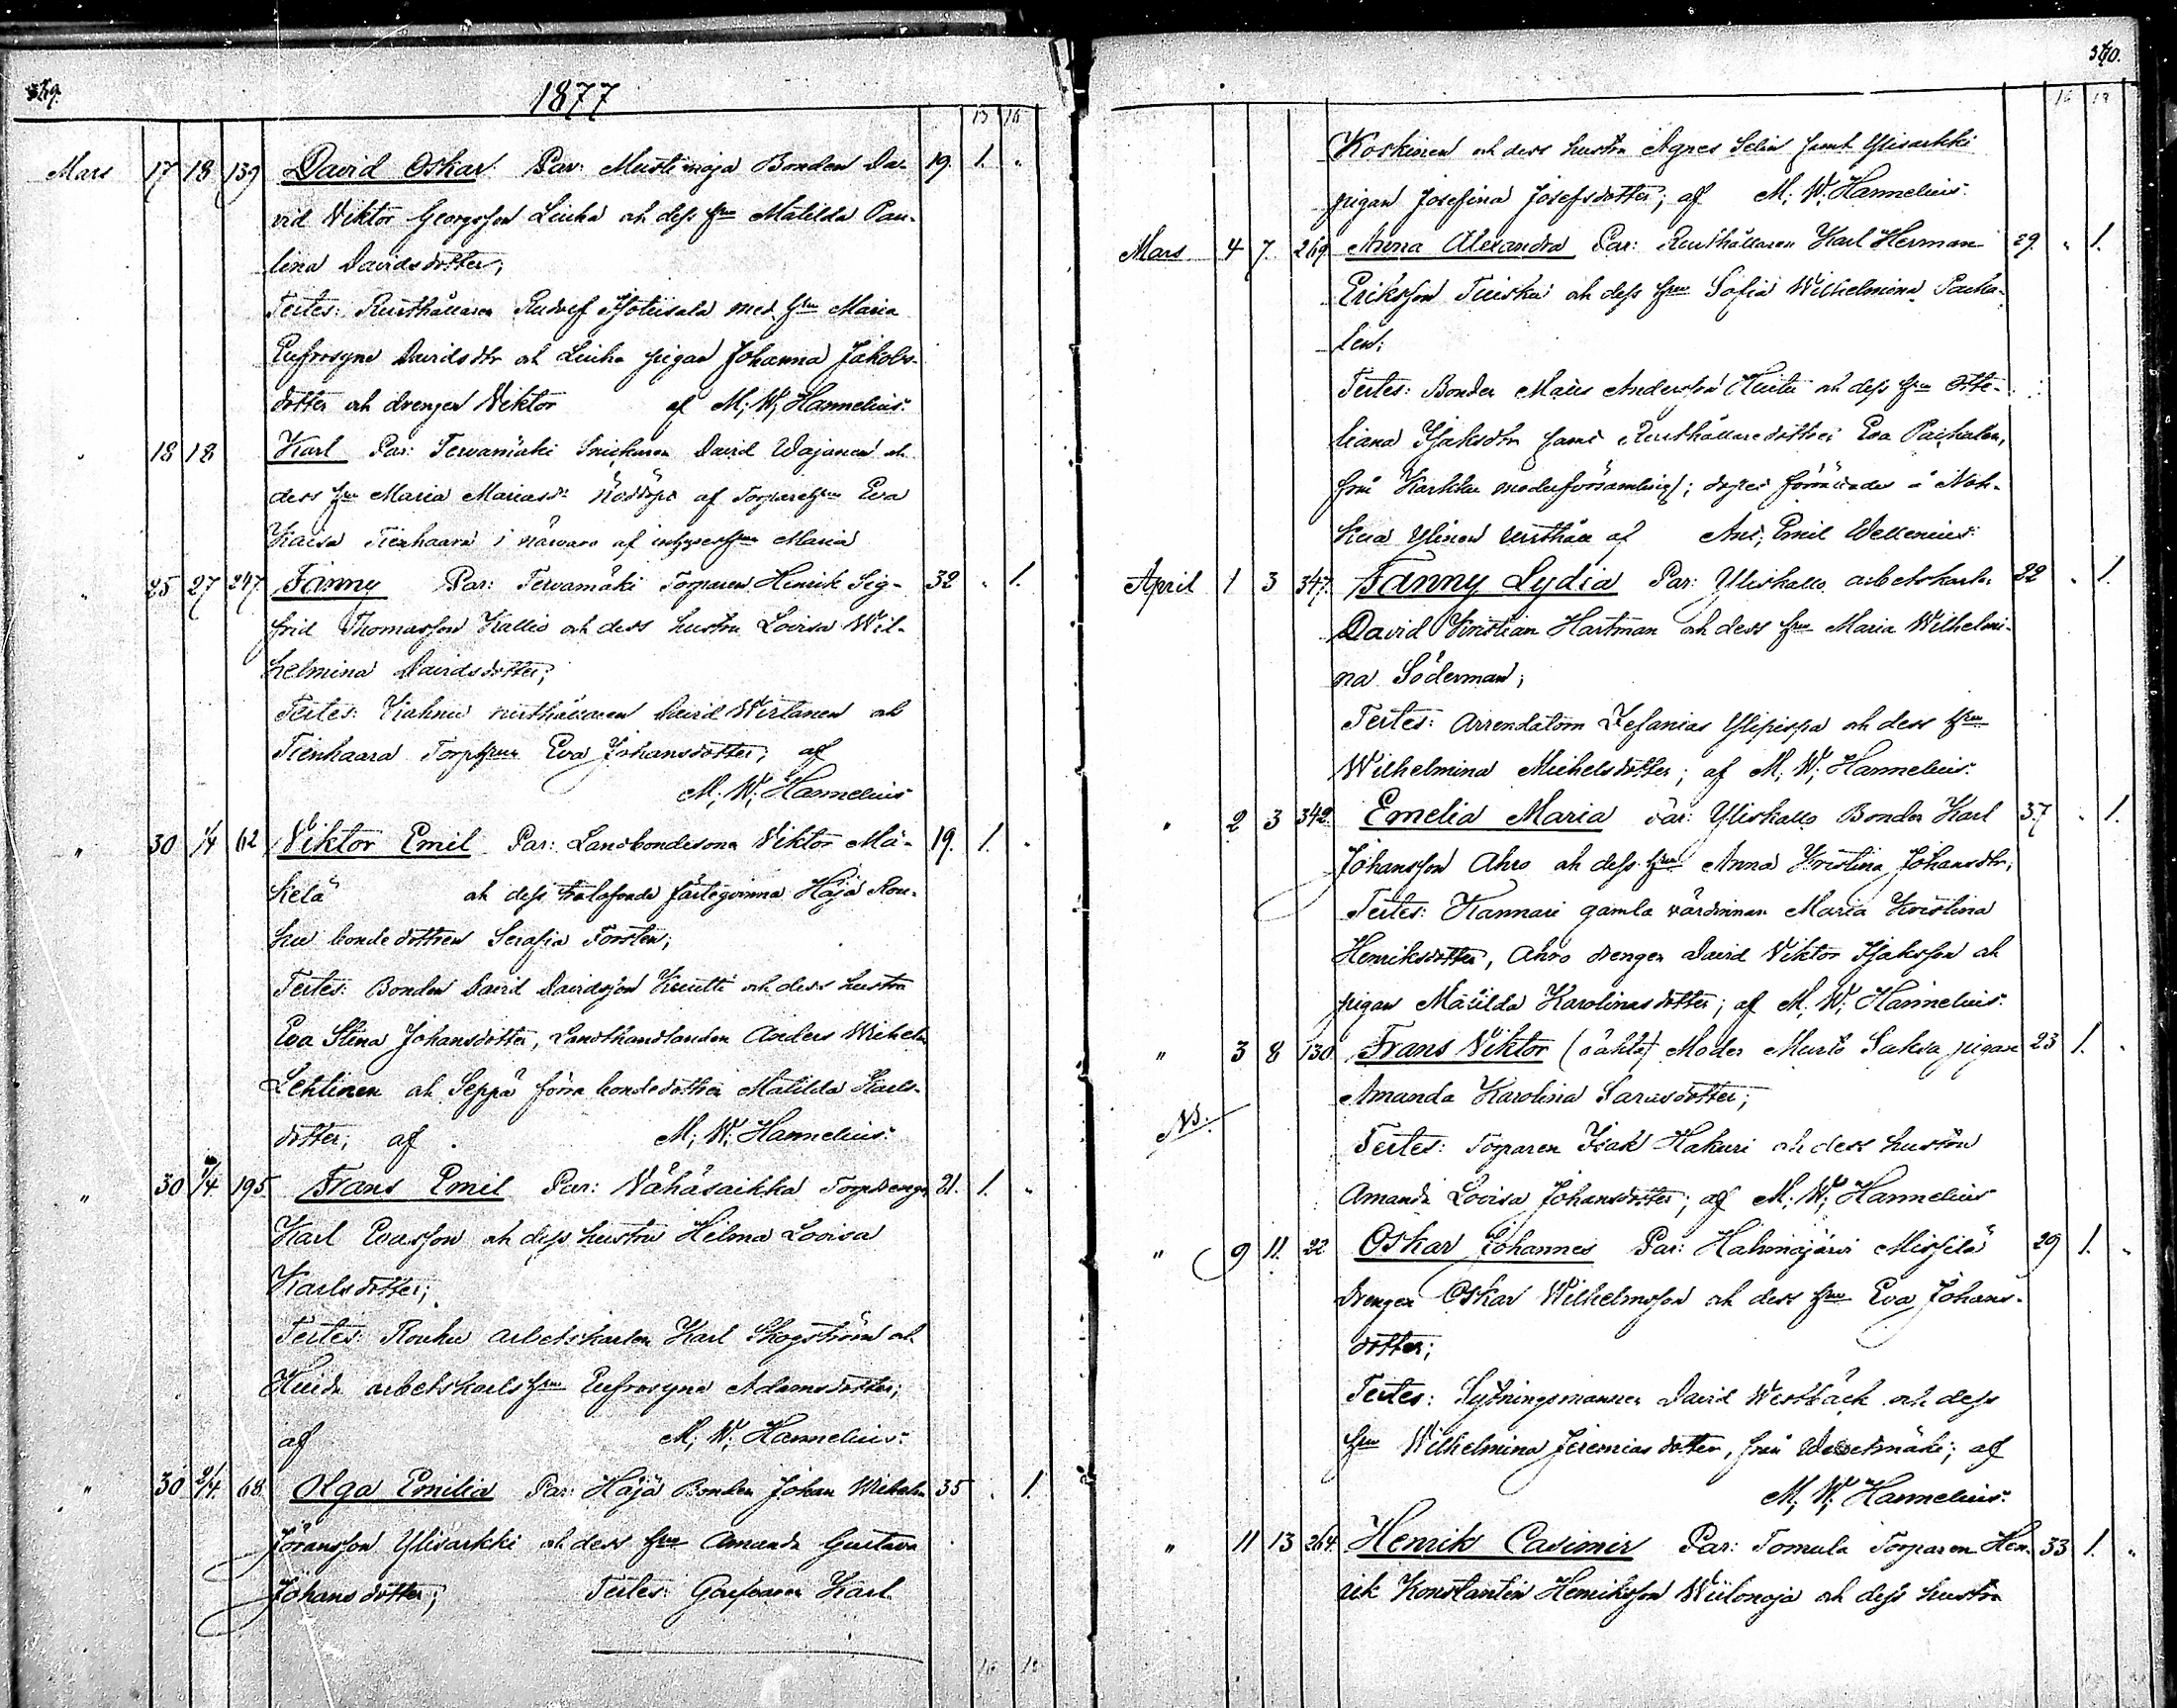 1877
13 16
Mars 17 18 139 David Oskar Par: Mustimaja Bonden Da- 19. 1. "
vid Viktor Georgsson Liuha och dess hru Matilda Pau-
lina Davidsdotter;
Testes: Rusthållaren Rudolf Isotuisala med hru Maria
Eufrosyne Davidsdtr och Liuha pigan Johanna Jakobs-
dotter och drengen Viktor af M; W; Hannelius.
" 18 18 Karl Par: Tervamäki Snickaren David Wajanen och
dess hru Maria Mariasdr Nöddöpt af Torparehru Eva
Kaisa Tienhaara i närvaro af inhyseshru Maria
" 25 27 247 Fanny Par: Tervamäki Torparen Henrik Sig- 32 " 1.
frid Thomasson Kallio och dess hustru Lovisa Wil-
helmina Davidsdotter;
Testes: rusthållaren David Wirtanen och
Tienhaara Torphrun Eva Johansdotter; af
M; W; Hannelius
" 30 1/4 62 Viktor Emil Par: Landbondesonen Viktor Mä- 19. 1. "
kelä och dess trolofvade fästeqvinna Häjä Rou-
hu bondedottren Serafia Forsten;
Testes: Bonden David Davidsson Knutti och dess hustru
Eva Stina Johansdotter, Landthandlanden Anders Wilhelm
Lehtinen och Seppä förra bondedottren Matilda Karls-
dotter; af M; W; Hannelius.
" 30 1/4 195 Frans Emil Par: Vähäsaikka Torpdrengen 21. 1. "
Karl Evasson och dess hustru Helma Lovisa
Karlsdotter;
Testes: Rouhu arbetskarlen Karl Skogström och
arbetskarls hru Eufrosyne Adamsdotter;
af M; W; Hannelius.
" 30 2/4 68 Olga Emilia Par: Häjä Bonden Johan Wilhelm 35 . 1.
Jöransson Ylisarkki och dess hru Amanda Gustava
Johansdotter; Testes: Garfvaren Karl
340.
Koskinen och dess hustru Agnes Selin samt Ylisarkki
pigan Josefina Josefsdotter; af M; W; Hannelius.
Mars 4 7. 269. Anna Alexandra Par: Rusthållaren Karl Herman 29. " 1.
Eriksson Tuisku och dess hru Sofia Wilhelmina Pacha-
len;
Testes: Bonden Matts Andersson och dess hru Otte-
liana Isaksdtr samt Rusthållaredottren Eva Pachalen,
från Karkku moderförsamling; dopet förrättades å Noh-
kua Ylinen rusthåll af And; Emil Wellenius.
April 1 3 347. Fanny Lydia Par: Yliskallo arbetskarlen 22 " 1.
David Kristian Hartman och dess hru Maria Wilhelmi-
na Söderman;
Testes: Arrendatorn Zefanias Ylipispa och dess hru
Wilhelmina Michelsdotter; af M; W; Hannelius.
" 2 3 342. Emelia Maria Par: Yliskallo Bonden Karl 37. " 1.
Johansson Ahro och dess hru Anna Kristina Johansdtr;
Testes: Kannari gamla värdinnan Maria Kristina
Henriksdotter, Ahro drengen David Viktor Isaksson och
pigan Matilda Karolinasdotter; af M; W; Hannelius.
" 3 8 130. Frans Viktor (oäkta) Moder Murto Saksa pigan 23 1. "
Amanda Karolina Sarasdotter;
NB.
Testes: Torparen Isak Hakuri och dess hustru
Amanda Lovisa Johansdotter; af M; W; Hannelius
" 9 11. 22 Oskar Johannes Par: Hahmajärvi Missilä 29 1. "
drengen Oskar Wilhelmsson och dess hru Eva Johans-
dotter;
Testes: Sytningsmannen David Westbäck och dess
hru Wilhelmina Jeremiasdotter, från; af
M; W; Hannelius.
" 11 13 264. Henrik Casimir Par: Tomula Torparen Hen- 33 1. "
rik Konstantin Henriksson Wiilonoja och dess hustru